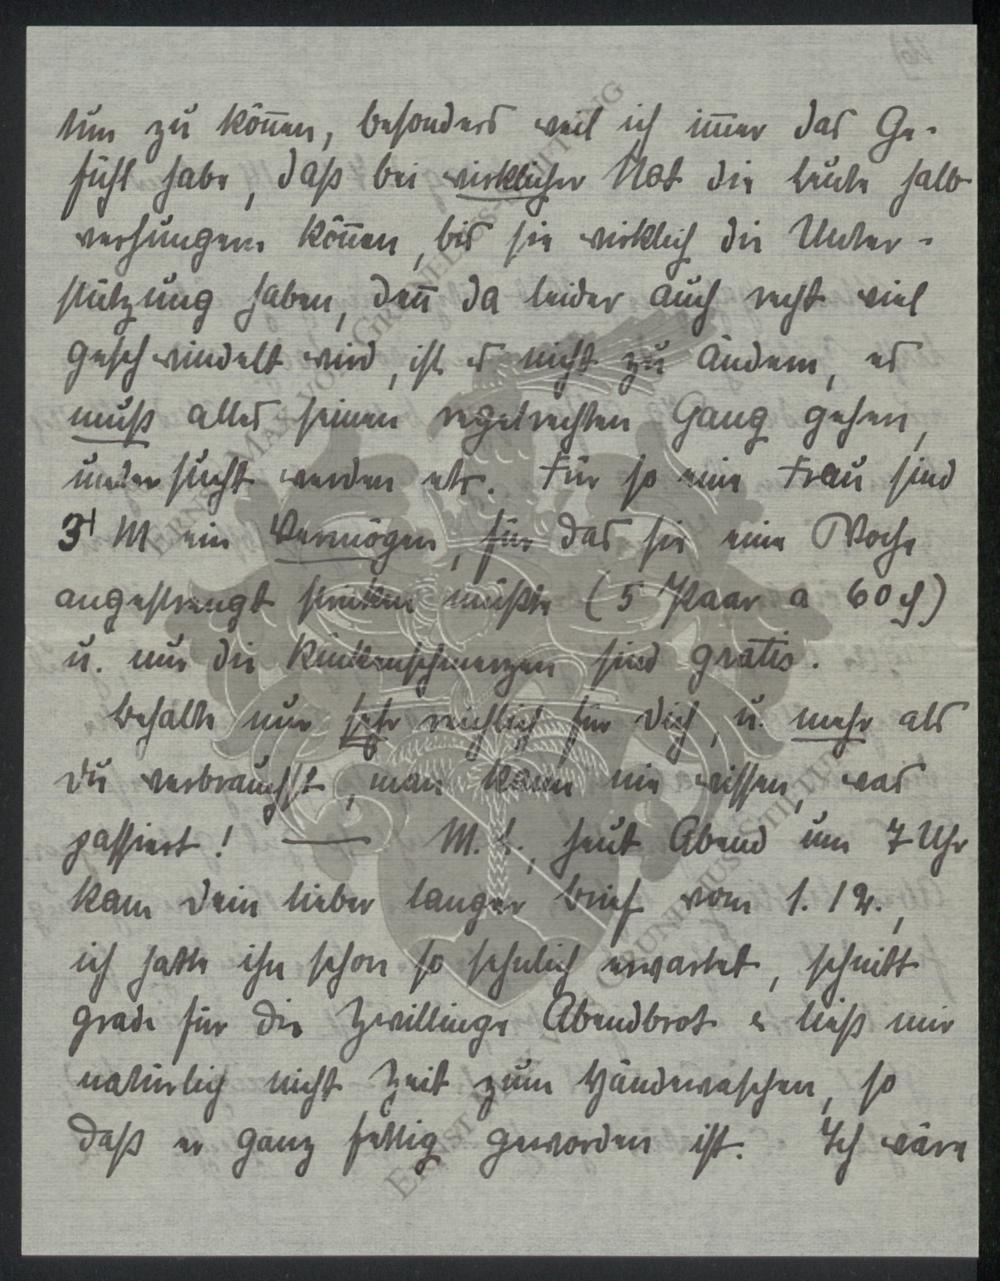 tun zu können, besonders weil ich immer das Ge-
fühl habe, daß bei wirklicher Not die Leute halb
verhungern können, bis sie wirklich die Unter-
stützung haben, denn da leider auch recht viel
geschwindelt wird, ist es nicht zu ändern, es
muß alles seinen regelrechten Gang gehen,
untersucht werden etc. Für so eine Frau sind
3 M ein Vermögen, für das sie eine Woche
angestrengt stricken müßte (5 Paar a 60 ₰)
u. nur die Rückenschmerzen sind gratis.
Behalte nur sehr reichlich für Dich, u. mehr als
Du verbrauchst, man kann nie wissen, was
passiert! — M. L., heut Abend um 7 Uhr
kam Dein lieber langer Brief vom 1. 12.,
ich hatte ihn schon so sehnlich erwartet, schnitt
grade für die Zwillinge Abendbrot & ließ mir
natürlich nicht Zeit zum Händewaschen, so
daß er ganz fettig geworden ist. Ich wäre
ERNST MAX VON GRUNELIUS-STIFTUNG
ERNST MAX VON GRUNELIUS-STIFTUNG